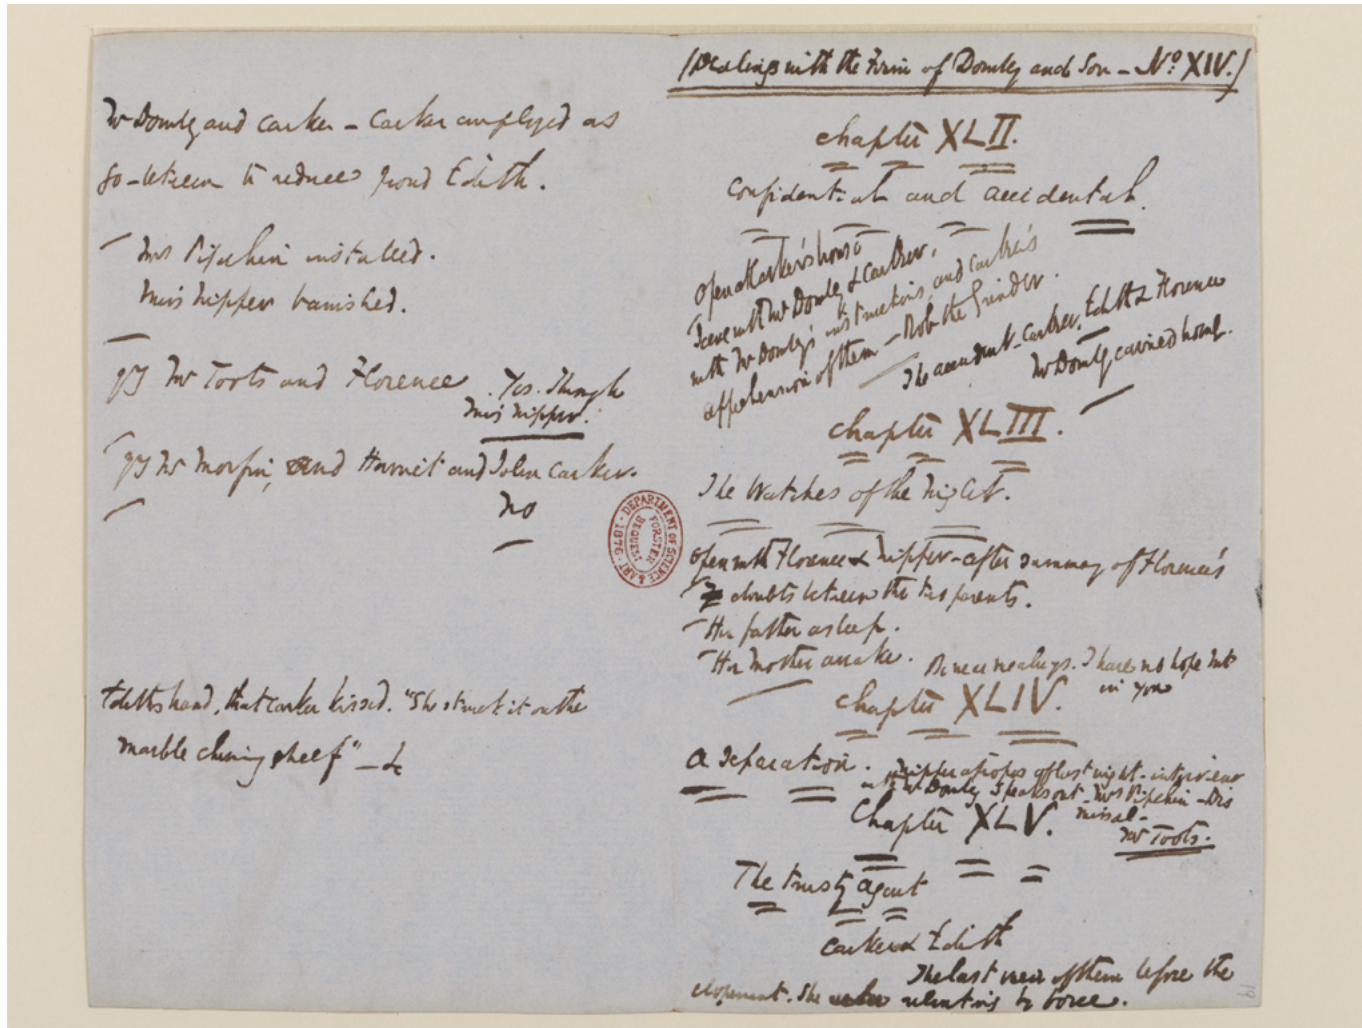 Mr Dombey and Carker – Carker employed as
go-between to reduce proud Edith.
Mrs Pipchin installed.
Miss Nipper vanished.
qy Mr Toots and Florence . Yes. Through
Miss Nipper.
qy Mr Morfin, and Harriet and John Carker.
No
Edith's hand, that Carker kissed. "She struck it on the
marble chimney shelf" – &c
(Dealings with the Firm of Dombey and Son – No. XIV.)
Chapter XLII.
Confidential and accidental.
Open at Carker's house
Scene with Mr Dombey & Carker,
with Mr Dombey's instructions, and Carker's
apprehension of them – Rob the Grinder.
The accident – Carker, Edith & Florence
Mr Dombey carried home.
Chapter XLIII.
The Watches of the Night.
Open with Florence & Nipper – after summary of Florence's
doubts between the two parents.
Her father asleep.
Her Mother awake. I have no hope but
in you
Chapter XLIV.
A Separation. Nipper apropos of last night – interview
with Mr Dombey Speaks out – Mrs Pipchin – Dis
missal –
Mr Toots.
Chapter XLV.
The trusty agent
Carker & Edith
The last view of them before the
elopement. She relenting by force.
DEPARTMENT OF SCIENCE & ART · 1876 ·
FORSTER
BEQUEST